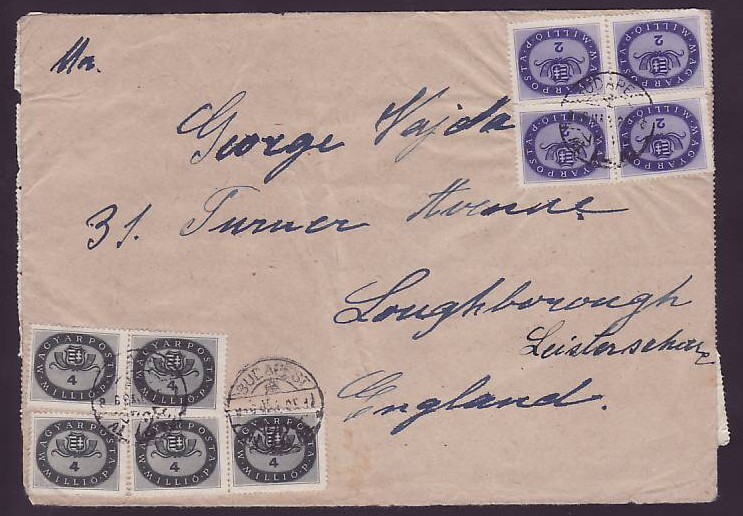 Mr.
George Vajda
31. Turner Avenue
Loughborough
Leisterschaie
England.
MAGYAR POSTA 2 MILLIÓ.P.
MAGYAR POSTA 2 MILLIÓ.P.
MAGYAR POSTA 2 MILLIÓ.P.
MAGYAR POSTA 2 MILLIÓ.P.
BUDAPE
MAGYAR POSTA 4 MILLIÓ.P.
MAGYAR POSTA 4 MILLIÓ.P.
MAGYAR POSTA 4 MILLIÓ.P.
MAGYAR POSTA 4 MILLIÓ.P.
MAGYAR POSTA 4 MILLIÓ.P.
BUDAPEST